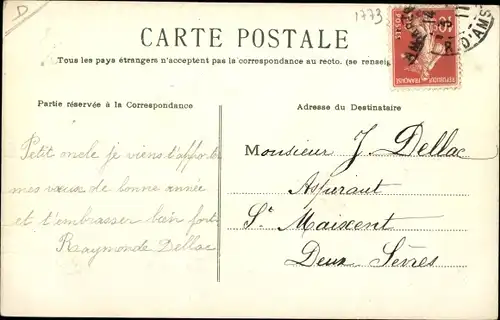 D
1773
CARTE POSTALE
Tous les pays étrangers n'acceptent pas la correspondance au recto. (se renseig
REPUBLIQUE FRANÇAISE
POSTES
10
D'AMS
Partie réservée à la Correspondance
Petit oncle je viens t'apporter
mes vœux de bonne année
et t'embrasser bien fort
Raymonde Dellac
Adresse du Destinataire
Monsieur J. Dellac
Aspirant
St Maixent
Deux Sèvres